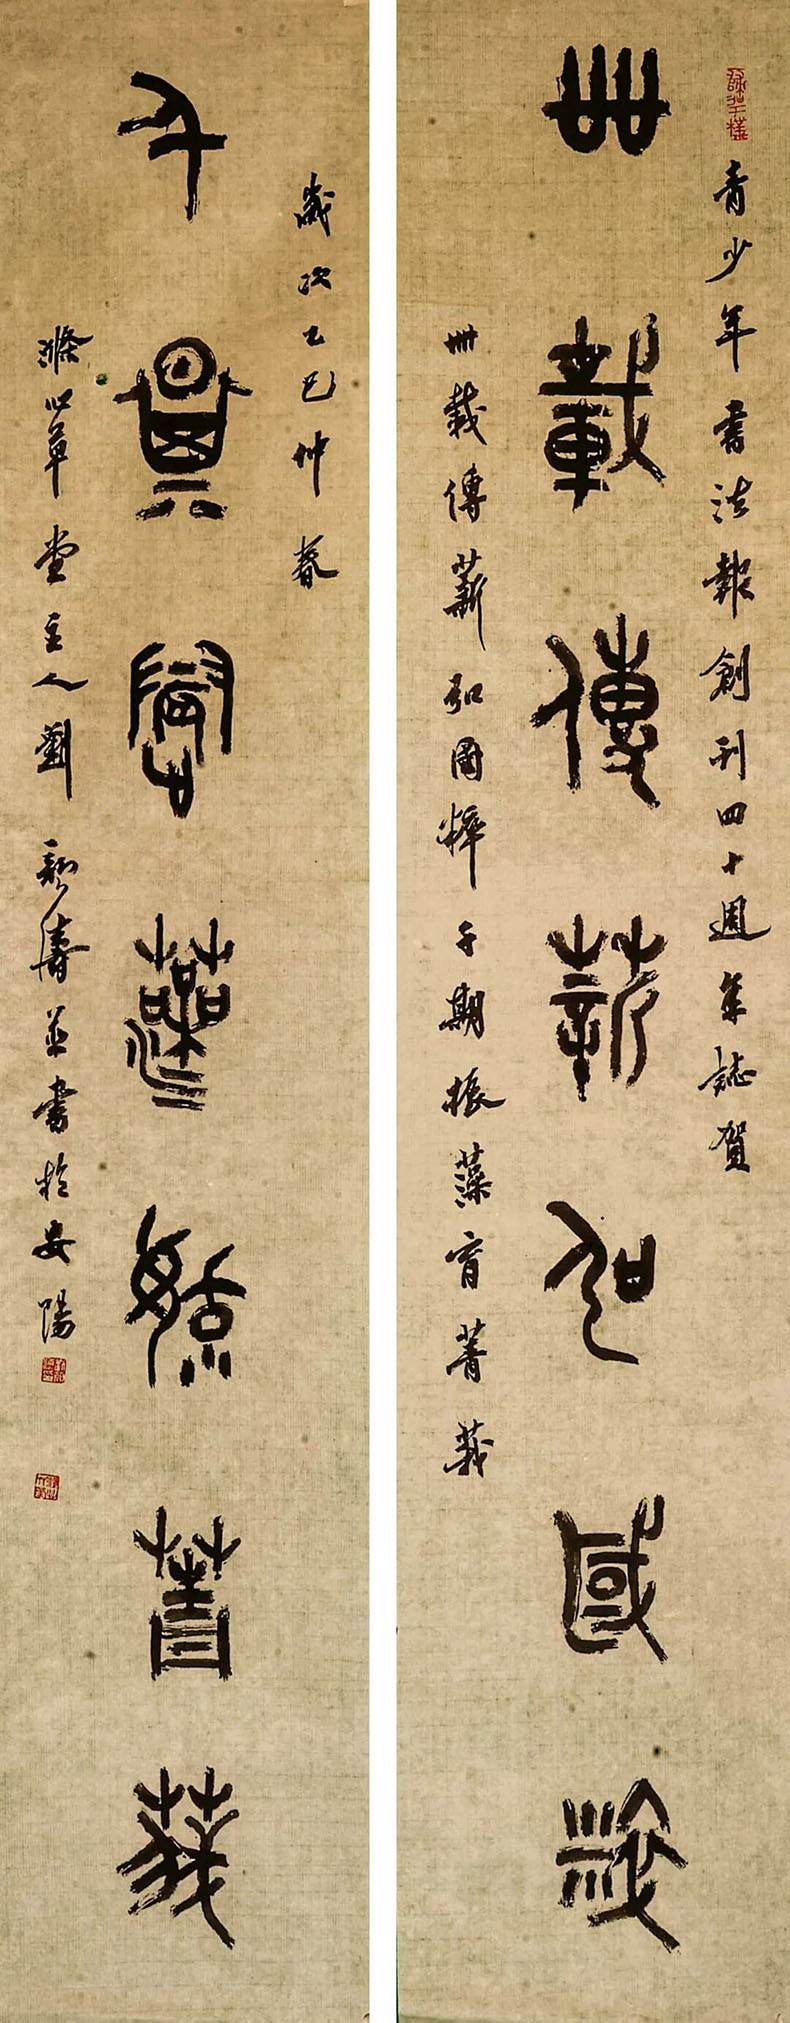 青少年書法報創刊四十週年誌賀
卌載傳薪弘國粹
卌載傳薪弘國粹千期振藻育菁莪
歲次乙巳仲春
千期振藻育菁莪
滌心草堂主人劉濤並書於安陽